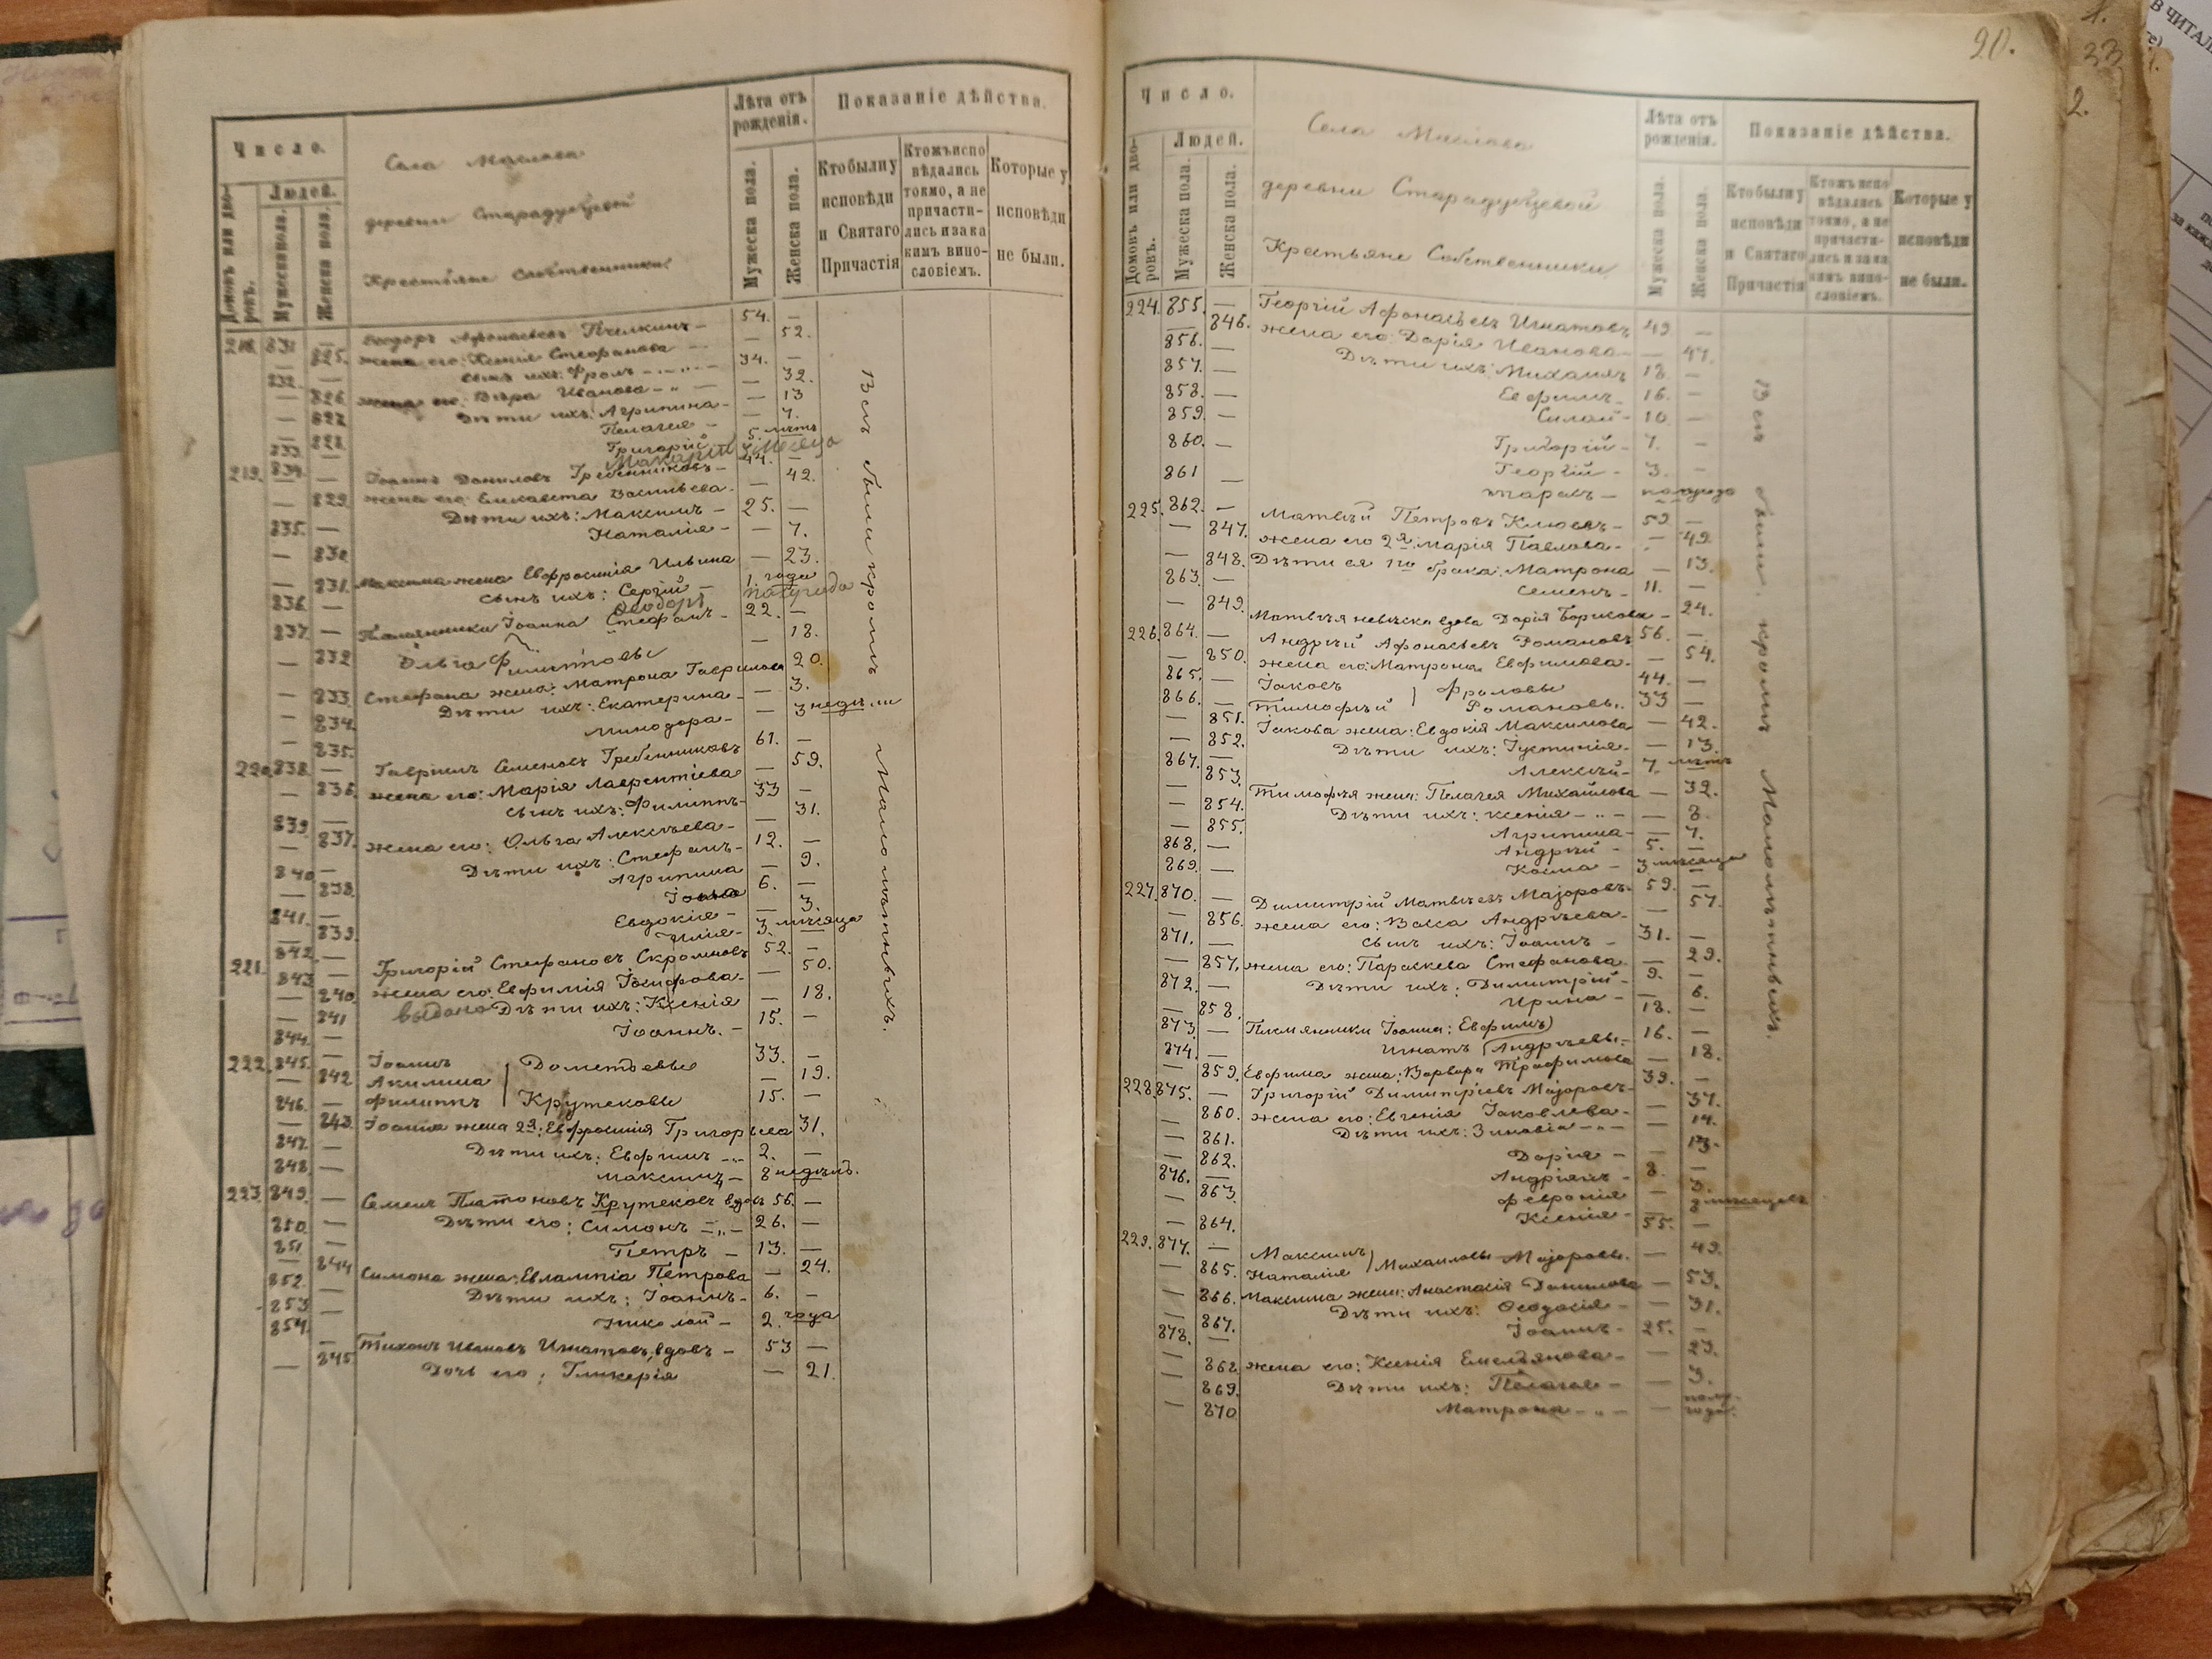 Число.
Домовъ или дворовъ.
Людей.
Мужеска пола.
Женска пола.
Села Маслова
деревни Старадубцевой
Крестьяне Собственники
Лѣта отъ рожденія.
Мужеска пола.
Женска пола.
Показаніе дѣйства.
Кто были у исповѣди и Святаго Причастія
Кто жъ исповѣдались токмо, а не причастились и за какимъ винословіемъ.
Которые у исповѣди не были.
218. 831 — Ѳеодоръ Афонасьевъ Пчелкинъ — 54. —
— 825. жена его: Ксенія Стефанова — — 52.
832. — сынъ ихъ: Фролъ — 34. —
— 826. жена его: Вѣра Иванова — „ — — 32.
— 827. Дѣти ихъ: Агрипина — — 13
— 828. Пелагея — — 7.
833. — Григорій 5. лѣтъ
Макарій 3 месяца
219. 834. — Іоаннъ Даниловъ Гребенниковъ — 44. —
— 829. жена его: Елисавета Васильева — — 42.
835. — Дѣти ихъ: Максимъ — 25. —
— 830. Наталія — — 7.
— 831. Максима жена Евфросинія Ильина — 23.
836. — сынъ ихъ: Сергій — 1. года
Ѳеодоръ полгуода
837. — Племянники Іоанна Стефанъ — 22. —
— 832 Ольга Филиповы — 18.
— 833. Стефана жена: Матрона Гаврилова 20.
— 834. Дѣти ихъ: Екатерина — — 3.
— 835. Минодора — — 3 недѣли
220. 838. — Гавріилъ Семеновъ Гребенниковъ 61. —
— 836. жена его: Марія Лаврентіева — 59.
839. — сынъ ихъ: Филиппъ — 33 —
— 837. жена его: Ольга Алексѣева — — 31.
840. — Дѣти ихъ: Стефанъ — 12. —
— 838. Агрипина — 9.
841. — Іоанна 6. —
— 839. Евдокія — — 3.
842. — Илія — 3. мѣсяца
221. 843. — Григорій Стефановъ Скромновъ 52. —
— 840. жена его: Евфимія Іосифова — — 50.
— 841 выдана Дѣти ихъ: Ксенія — 18.
844. — Іоаннъ. — 15. —
222. 845. — Іоаннъ Дометьевы 33. —
— 842 Акилина — 19.
846. — Филиппъ Крутековы 15. —
— 843. Іоанна жена 2я: Евфросинія Григорьева 31.
847. — Дѣти ихъ: Евфимъ — „ — 2. —
848. — Максимъ — 8 недѣль.
223. 849. — Семенъ Платоновъ Крутековъ вдовъ 56. —
850. — Дѣти его: Симонъ — „ — 26. —
851. — Петръ — 13. —
— 844 Симона жена: Евлампіа Петрова — 24.
852. — Дѣти ихъ: Іоаннъ — 6. —
853 — Николай — 2. года
854. — Тихонъ Ивановъ Игнатовъ, вдовъ — 53 —
— 845. Дочь его: Гликерія — 21.
Всѣ были кромѣ малолѣтныхъ.
20.
Число.
Домовъ или дворовъ.
Людей.
Мужеска пола.
Женска пола.
Села Маслова
деревни Старадубцевой
Крестьяне Собственники
Лѣта отъ рожденія.
Мужеска пола.
Женска пола.
Показаніе дѣйства.
Кто были у исповѣди и Святаго Причастія
Кто жъ исповѣдались токмо, а не причастились и за какимъ винословіемъ.
Которые у исповѣди не были.
224. 855. — Георгій Афонасьевъ Игнатовъ 49 —
— 846. жена его: Дарія Иванова — — 47.
856. — Дѣти ихъ: Михаилъ 18. —
857. — Евфимъ — 16. —
858. — Силай — 10 —
859. — Григорій — 7. —
860. — Георгій — 3. —
861 — полугода
225. 862. — Матвѣй Петровъ Клюевъ — 52 —
— 847. жена его 2я: Марія Павлова — — 49.
— 848. Дѣти ея 1го брака: Матрона — 13.
863. — Семенъ — 11. —
— 849. Матвѣя невѣска вдова Дарія Борисова — 24.
226. 864. — Андрѣй Афонасьевъ Романовъ 56. —
— 850. жена его: Матрона Евфимова — — 54.
865. — Іаковъ Фроловы 44. —
866. — Тимофѣй Романовы. 33 —
— 851. Іакова жена: Евдокія Максимова — 42.
— 852. Дѣти ихъ: Іустинія — — 13.
867. — Алексѣй — 7. лѣтъ
— 853. Тимофѣя жена: Пелагея Михайлова — 32.
— 854. Дѣти ихъ: Ксенія — „ — — 8.
— 855. Агрипина — — 7.
868. — Андрѣй — 5. —
869. — Косма — 3 мѣсяца
227. 870. — Димитрій Матвѣевъ Маіоровъ — 59. —
— 856. жена его: Васса Андрѣева — — 57.
871. — сынъ ихъ: Іоаннъ — 31. —
— 857. жена его: Параскева Стефанова — — 29.
872. — Дѣти ихъ: Димитрій — 9. —
— 858. Ирина — — 6.
873. — Племянники Іоанна: Евфимъ 18. —
874. — Игнатъ Андрѣевы — 16. —
— 859. Евфима жена: Варвара Трофимова — 18.
228. 875. — Григорій Димитріевъ Маіоровъ — 39. —
— 860. жена его: Евгенія Іаковлева — — 37.
— 861. Дѣти ихъ: Зиновія — „ — — 14.
— 862. Дарія — — 13.
876. — Андріянъ — 8. —
— 863. Февронія — 3.
— 864. Ксенія — — 8 мѣсяцевъ
229. 877. — Максимъ Михаиловы Маіоровы. 55. —
— 865. Наталія — 49.
— 866. Максима жена: Анастасія Данилова — 53.
— 867. Дѣти ихъ: Ѳеодосія — — 31.
878. — Іоаннъ — 25. —
— 868. жена его: Ксенія Емельянова — — 23.
— 869. Дѣти ихъ: Пелагея — — 3.
— 870 Матрона — „ — — полугода.
Всѣ были кромѣ малолѣтныхъ.